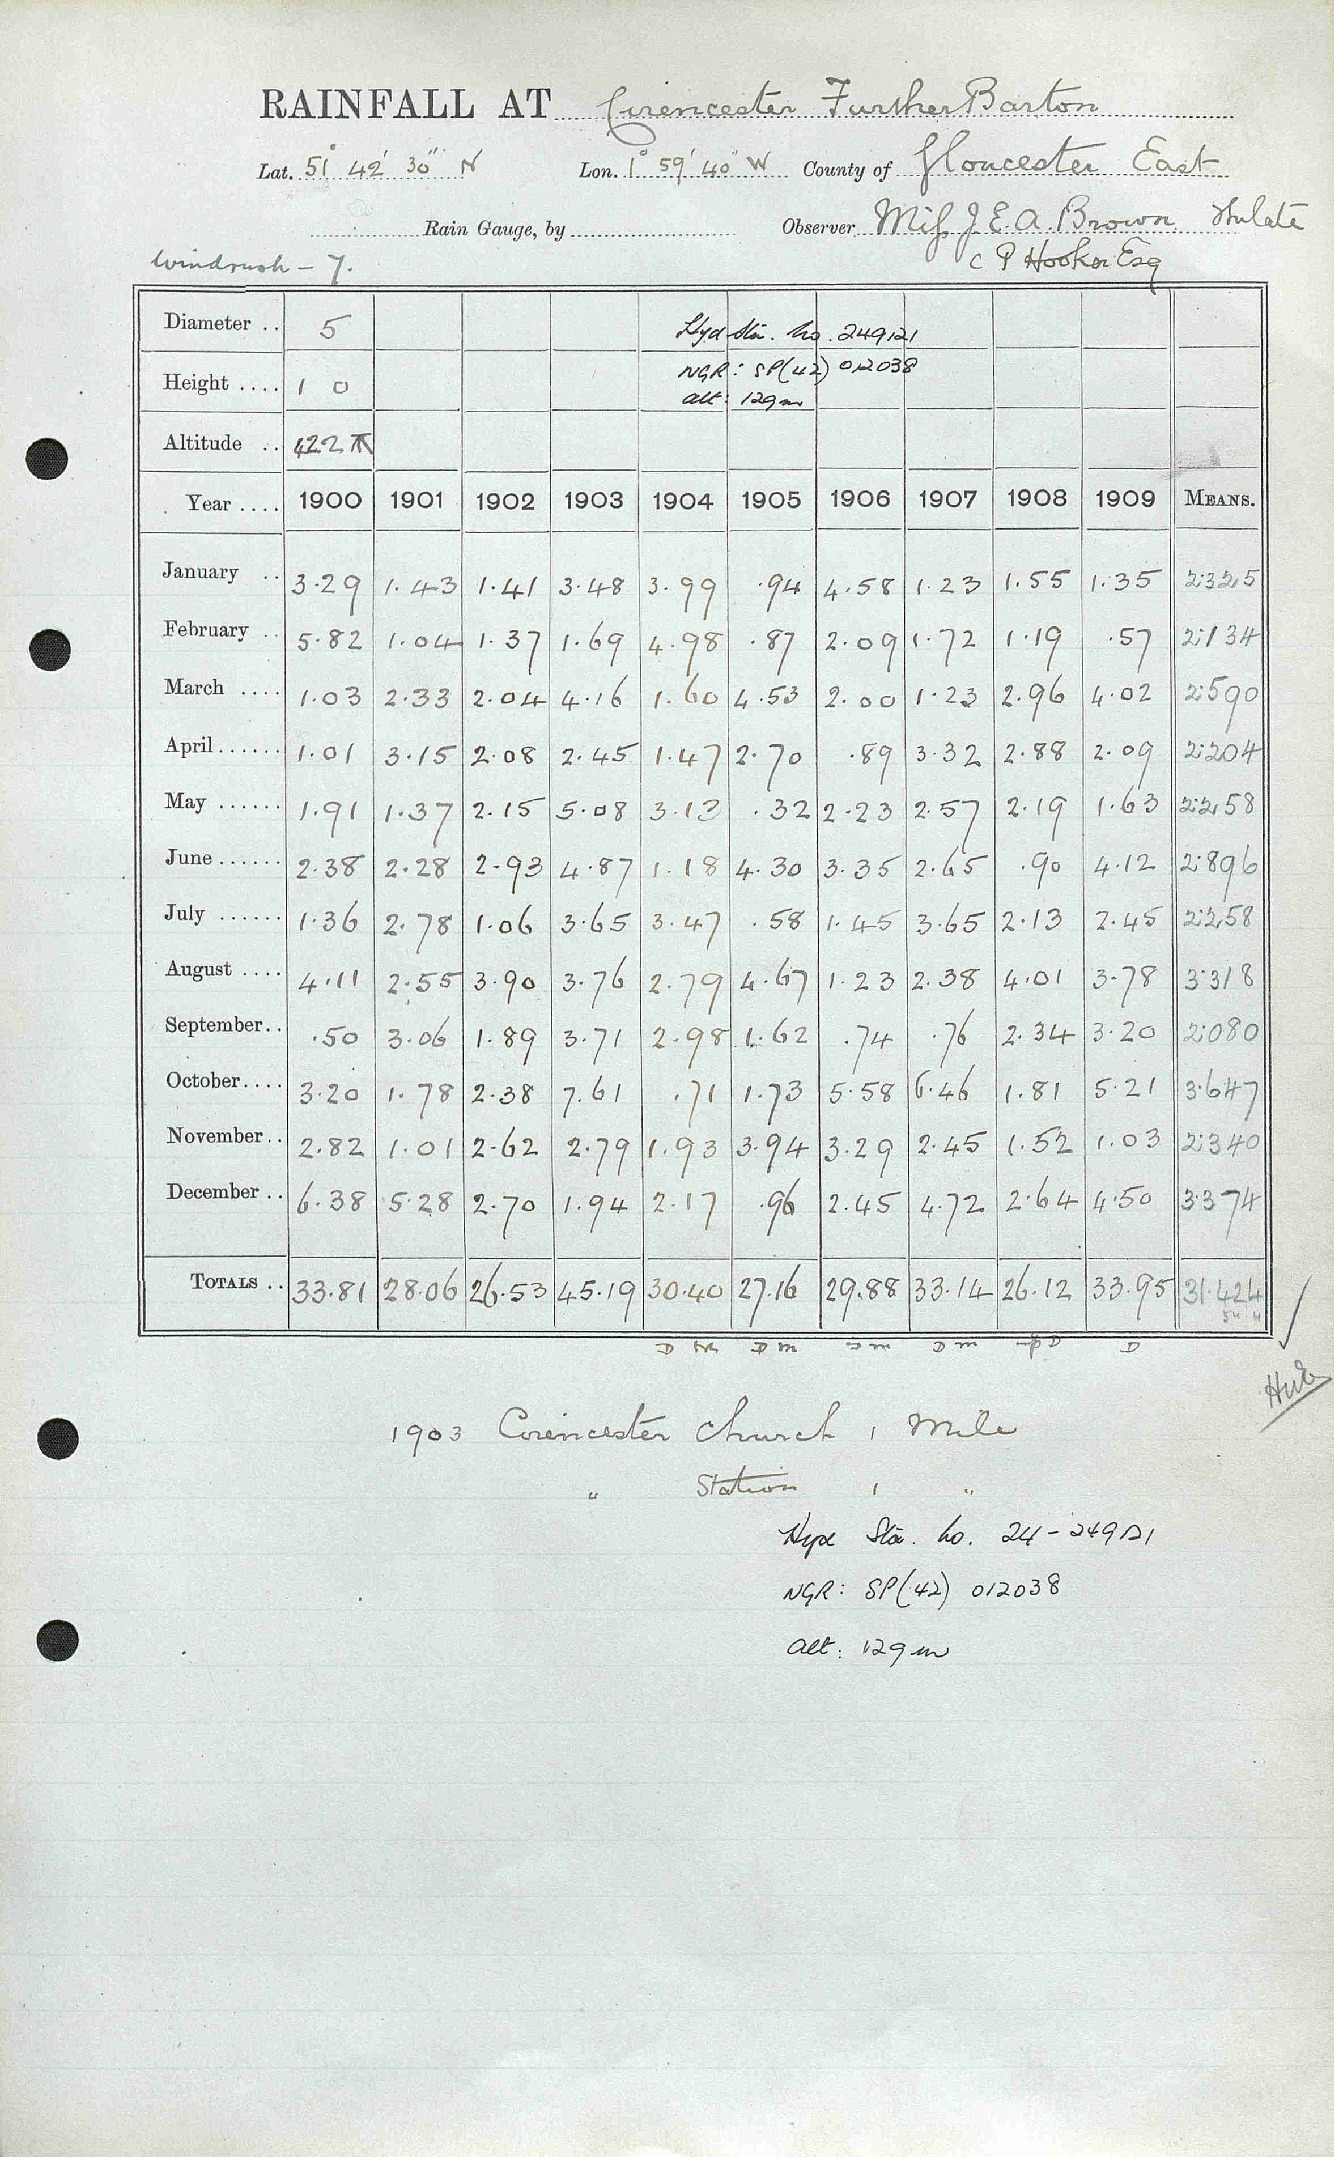 RAINFALL AT Cirencester Further Barton
Lat. 51° 42' 30" N Lon. 1° 59' 40" W County of Gloucester East
Rain Gauge, by Observer Miss J.E.A. Brown
Windrush - 7. C P Hooker Esq
Diameter .. 5 Hyd Sta. No. 249121
Height .... 1 0 NGR: SP(42) 012038
alt: 129m
Altitude .. 422
Year .... 1900 1901 1902 1903 1904 1905 1906 1907 1908 1909 MEANS.
January .. 3.29 1.43 1.41 3.48 3.99 .94 4.58 1.23 1.55 1.35 2.325
February .. 5.82 1.04 1.37 1.69 4.98 .87 2.09 1.72 1.19 .57 2.134
March .... 1.03 2.33 2.04 4.16 1.60 4.53 2.00 1.23 2.96 4.02 2.590
April ...... 1.01 3.15 2.08 2.45 1.47 2.70 .89 3.32 2.88 2.09 2.204
May ...... 1.91 1.37 2.15 5.08 3.13 .32 2.23 2.57 2.19 1.63 2.258
June ...... 2.38 2.28 2.93 4.87 1.18 4.30 3.35 2.65 .90 4.12 2.896
July ...... 1.36 2.78 1.06 3.65 3.47 .58 1.45 3.65 2.13 2.45 2.258
August .... 4.11 2.55 3.90 3.76 2.79 4.67 1.23 2.38 4.01 3.78 3.318
September .. .50 3.06 1.89 3.71 2.98 1.62 .74 .76 2.34 3.20 2.080
October .... 3.20 1.78 2.38 7.61 .71 1.73 5.58 6.46 1.81 5.21 3.647
November .. 2.82 1.01 2.62 2.79 1.93 3.94 3.29 2.45 1.52 1.03 2.340
December .. 6.38 5.28 2.70 1.94 2.17 .96 2.45 4.72 2.64 4.50 3.374
TOTALS .. 33.81 28.06 26.53 45.19 30.40 27.16 29.88 33.14 26.12 33.95 31.424
D D m m D m D D
1903 Cirencester Church 1 Mile
" Station 1 "
Sta. No. 24-249121
NGR: SP(42) 012038
alt: 129m